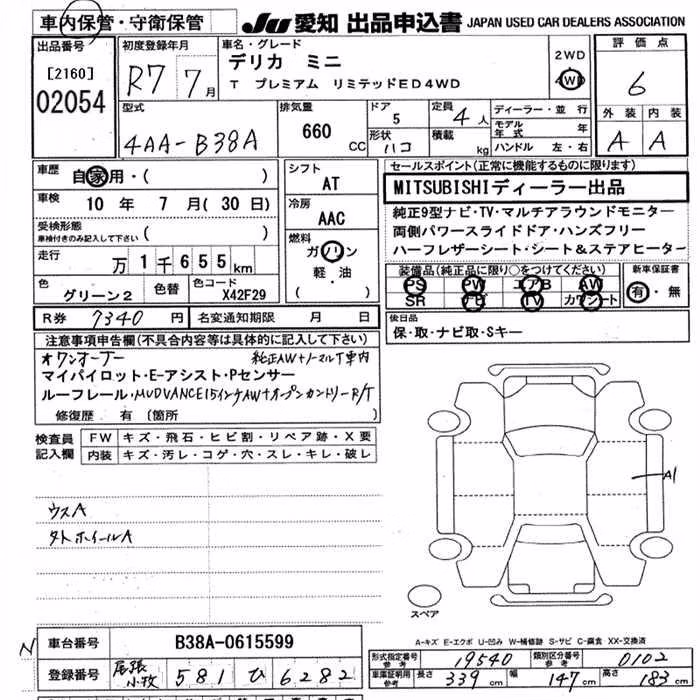 車内保管・守衛保管
JU 愛知 出品申込書 JAPAN USED CAR DEALERS ASSOCIATION
出品番号
[2160]
02054
初度登録年月
R7 7月
車名・グレード
デリカ ミニ
T プレミアム リミテッドED4WD
2WD
4WD
評価点
6
外装 内装
A A
型式
4AA-B38A
排気量
660 CC
ドア
5
形状
ハコ
定員
4人
積載
kg
ディーラー・並行
モデル年式 年
ハンドル 左・右
車歴
自家用・( )
車検
10年 7月(30日)
受検形態
車検付きのみ記入して下さい
( )
走行
万1千655km
色
グリーン2
色替
色コード
X42F29
シフト
AT
冷房
AAC
燃料
ガソリン
軽・油
( )
セールスポイント(正常に機能するものに限ります)
MITSUBISHIディーラー出品
純正9型ナビ・TV・マルチアラウンドモニター
両側パワースライドドア・ハンズフリー
ハーフレザーシート・シート&ステアヒーター
装備品(純正品に限り○をつけてください)
PS PW エアB AW
SR ナビ TV カワシート
新車保証書
有・無
R券 7340円
名変通知期限 月 日
後日品
保・取・ナビ取・Sキー
注意事項申告欄(不具合内容等は具体的に記入して下さい)
オワンオーナー 純正AW+ノーマルT車内
マイパイロット・E-アシスト・Pセンサー
ルーフレール・MUDVANCE15インチAW+オープンカントリーR/T
修復歴 有(箇所
検査員
記入欄
FW キズ・飛石・ヒビ割・リペア跡・X要
内装 キズ・汚レ・コゲ・穴・スレ・キレ・破レ
ウスA
タトホイールA
A1
スペア
A-キズ E-エクボ U-凹み W-補修跡 S-サビ C-腐食 XX-交換済
N
車台番号 B38A-0615599
登録番号 尾張小牧 581 ひ 6282
形式指定番号
参考
19540
類別区分番号
参考
0102
車庫証明用
参考
長さ 339cm 幅 147cm 高さ 183cm